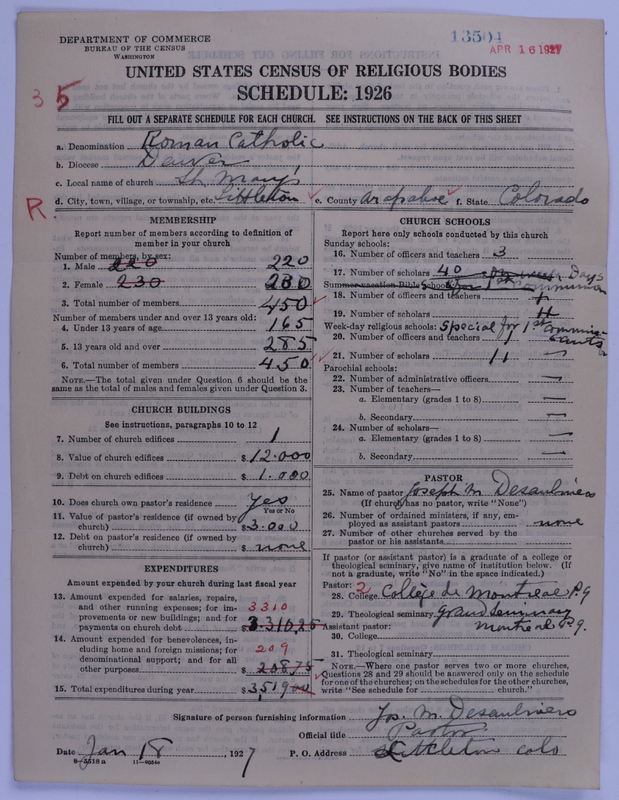 DEPARTMENT OF COMMERCE
BUREAU OF THE CENSUS
WASHINGTON
13504
APR 16 1927
UNITED STATES CENSUS OF RELIGIOUS BODIES
SCHEDULE: 1926
35
FILL OUT A SEPARATE SCHEDULE FOR EACH CHURCH. SEE INSTRUCTIONS ON THE BACK OF THIS SHEET
a. Denomination Roman Catholic
b. Diocese Denver
c. Local name of church St. Mary's
R. d. City, town, village, or township, etc. Littleton e. County Arapahoe f. State Colorado
MEMBERSHIP
Report number of members according to definition of
member in your church
Number of members, by sex:
1. Male 220 220
2. Female 230 230
3. Total number of members 450
Number of members under and over 13 years old:
4. Under 13 years of age 165
5. 13 years old and over 285
6. Total number of members 450
NOTE.—The total given under Question 6 should be the
same as the total of males and females given under Question 3.
CHURCH BUILDINGS
See instructions, paragraphs 10 to 12
7. Number of church edifices 1
8. Value of church edifices $12.000
9. Debt on church edifices $1.000
10. Does church own pastor's residence? Yes
Yes or No
11. Value of pastor's residence (if owned by
church) $3.000
12. Debt on pastor's residence (if owned by
church) $ none
EXPENDITURES
Amount expended by your church during last fiscal year
13. Amount expended for salaries, repairs,
and other running expenses; for im- 3310
provements or new buildings; and for
payments on church debt $3310,25
14. Amount expended for benevolences, in-
cluding home and foreign missions; for 209
denominational support; and for all
other purposes $20875
15. Total expenditures during year $3,51900
CHURCH SCHOOLS
Report here only schools conducted by this church
Sunday schools:
16. Number of officers and teachers 3
17. Number of scholars 40 on week Days
Summer vacation Bible schools: for 1st Communion
18. Number of officers and teachers
19. Number of scholars
Week-day religious schools: Special for 1st communi-
cants
20. Number of officers and teachers
21. Number of scholars 11 —
Parochial schools:
22. Number of administrative officers —
23. Number of teachers—
a. Elementary (grades 1 to 8) —
b. Secondary —
24. Number of scholars—
a. Elementary (grades 1 to 8) —
b. Secondary —
PASTOR
25. Name of pastor Joseph M Desaulniers
(If church has no pastor, write "None")
26. Number of ordained ministers, if any, em-
ployed as assistant pastors none
27. Number of other churches served by the
pastor or his assistants
If pastor (or assistant pastor) is a graduate of a college or
theological seminary, give name of institution below. (If
not a graduate, write "No" in the space indicated.)
Pastor: 2
28. College College de Montreal P.Q
29. Theological seminary Grand Seminary
Assistant pastor: Montreal P.Q.
30. College
31. Theological seminary
NOTE.—Where one pastor serves two or more churches,
Questions 28 and 29 should be answered only on the schedule
for one of the churches; on the schedules for the other churches,
write "See schedule for church."
Signature of person furnishing information Jos. M. Desaulniers
Official title Pastor
Date Jan 18, 1927 P. O. Address Littleton Colo
8—5518a 11—9054c